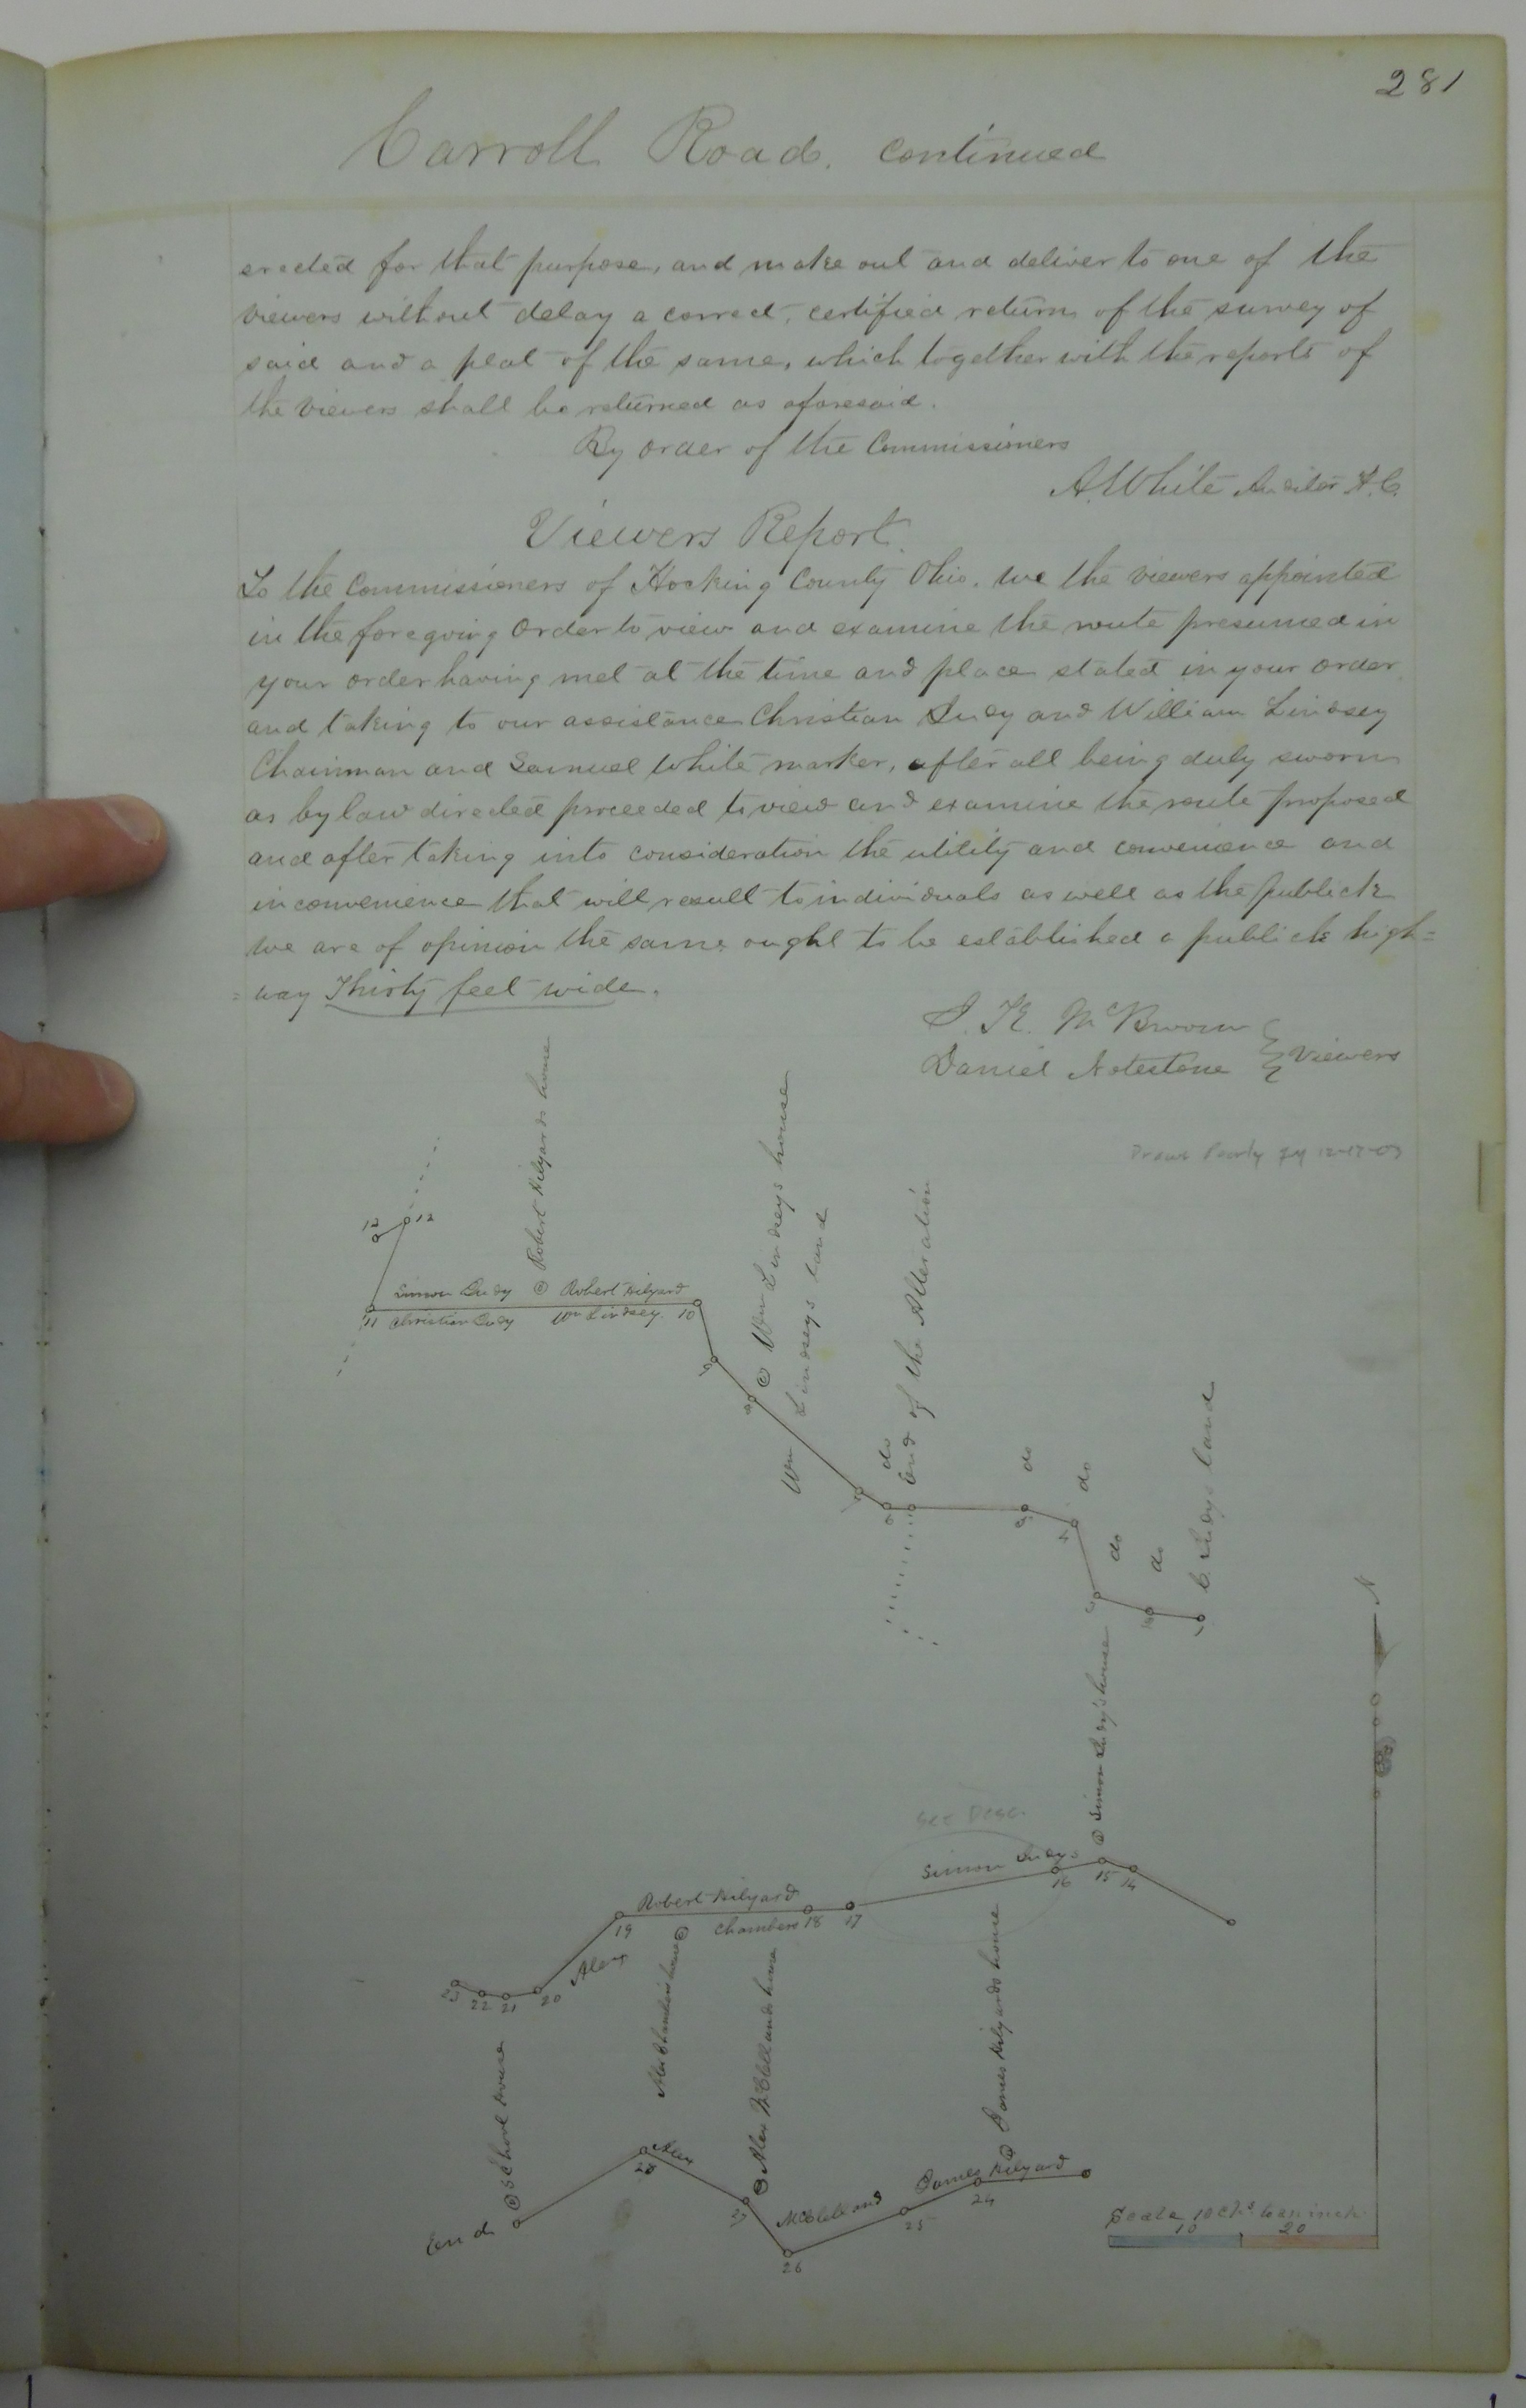 281
Carroll Road. continued
erected for that purpose, and make out and deliver to one of the
viewers without delay a correct, certified return of the survey of
said and a plat of the same, which together with the reports of
the viewers shall be returned as aforesaid.
By order of the Commissioners
A. White Auditor H. C.
Viewers Report.
To the Commissioners of Hocking County Ohio. We the viewers appointed
in the foregoing order to view and examine the route presumed in
your order having met at the time and place stated in your order
and taking to our assistance Christian Judy and William Lindsey
Chainman and Samuel White marker, after all being duly sworn
as by law directed proceeded to view and examine the route proposed
and after taking into consideration the utility and convenience and
inconvenience that will result to individuals as well as the publick
we are of opinion the same ought to be established a publick high=
=way Thirty feet wide.
Daniel Notestone } Viewers
Robert Hilyards house
Wm Lindseys house
Wm Lindseys land
do End of the Alteration
12 12
Simon Judy Robert Hilyard
11 Christian Judy Wm Lindsey 10
do
do
do
do
C. Judys land
N
Simon Judy's house
See Desc.
Simon Judys
16 15 14
Robert Hilyard
19 Chambers 18 17
Alex
23 22 21 20
Alex Chambers house
Alex McClellands house
James Hilyards house
School House
End
28 Alex
27 McClelland
James Hilyard
26 25 24
Scale 10 chs. to an inch
10 20